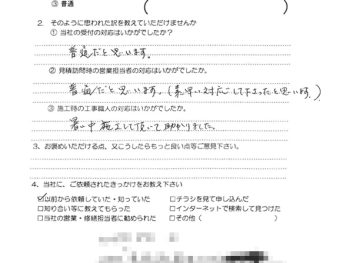 ③ 普通
2. そのように思われた訳を教えていただけませんか
① 当社の受付の対応はいかがでしたか?
普通だと思います。
② 見積訪問時の営業担当者の対応はいかがでしたか。
普通だと思います。(素早い対応して下さったと思います。)
③ 施工時の工事職人の対応はいかがでしたか。
暑い中施工して頂いて助かりました。
3、お褒めいただける点、又こうしたらもっと良い点等ご意見下さい。
4、当社に、ご依頼されたきっかけをお教え下さい
☑以前から依頼していた・知っていた □チラシを見て申し込んだ
□知り合い等に教えてもらった □インターネットで検索して見つけた
□当社の営業・修繕担当者に勧められた □その他(